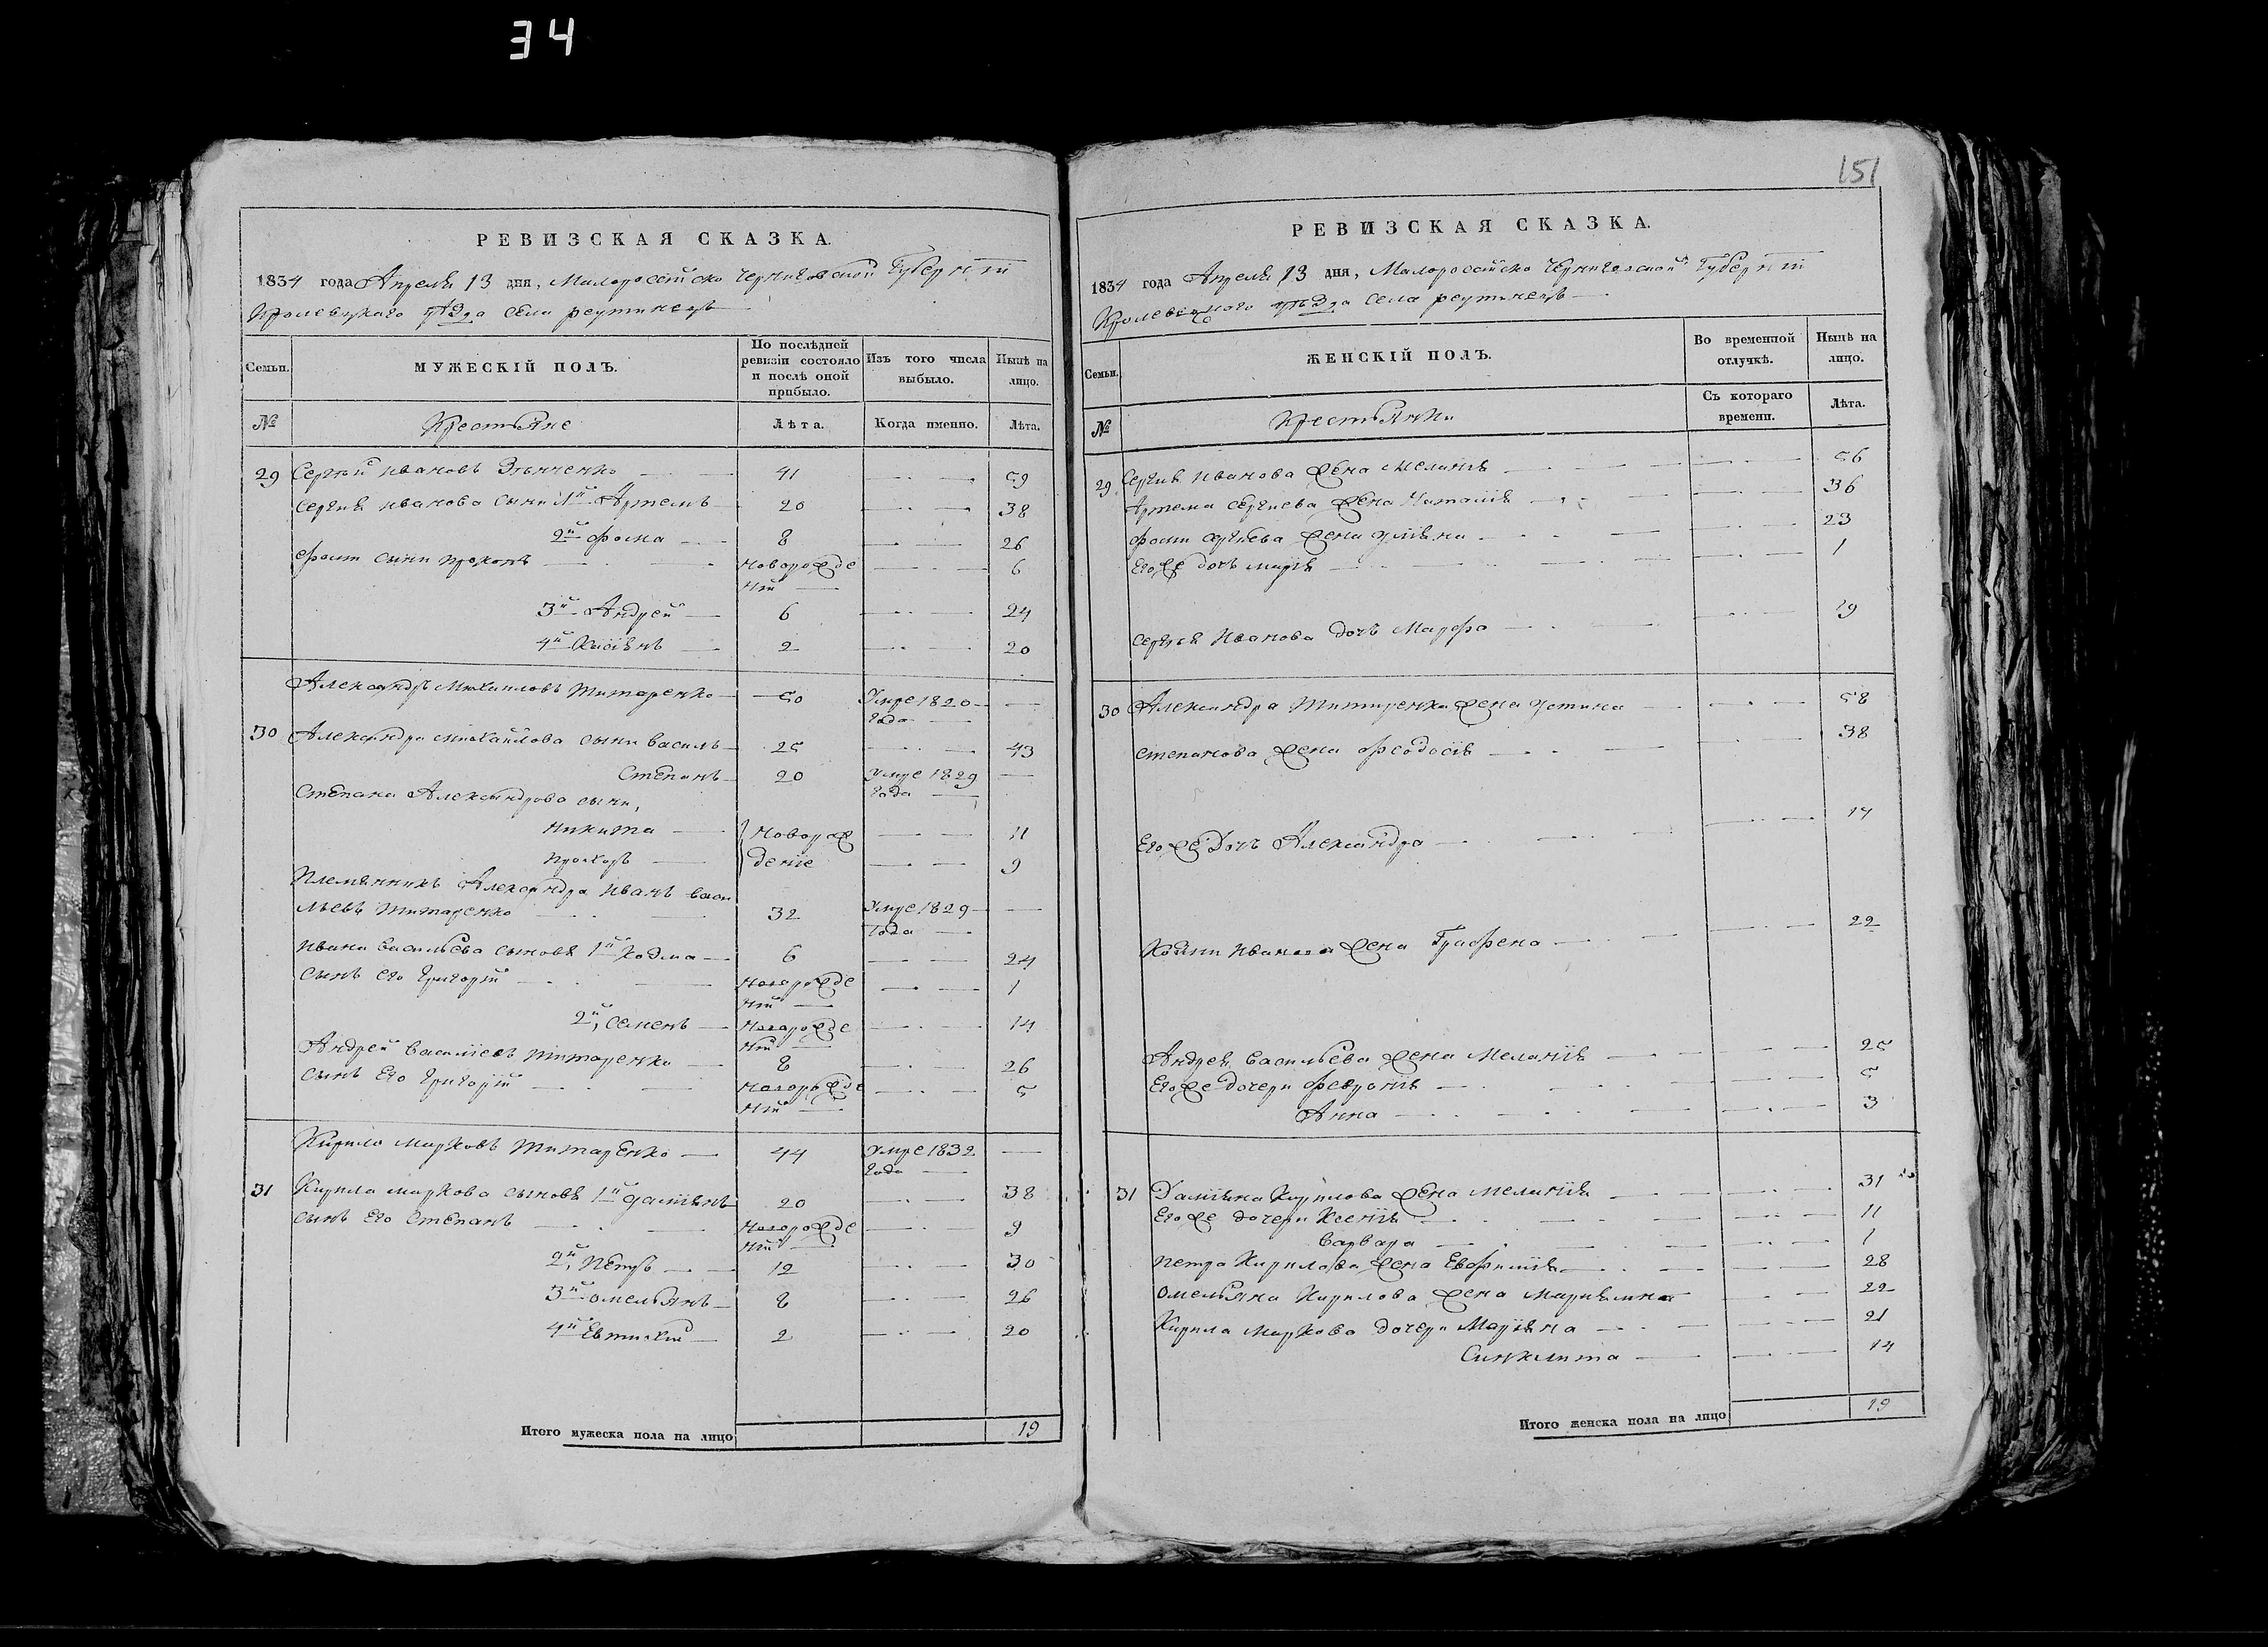 34
151
РЕВИЗСКАЯ СКАЗКА.
1834 года Апреля 13 дня, Малоросойско Черниговской Губерніи
Кролевецкаго уѣзда села реутинецъ
Семьи.
МУЖЕСКІЙ ПОЛЪ.
По послѣдней ревизіи состояло и послѣ оной прибыло.
Изъ того числа выбыло.
Нынѣ на лицо.
№
Крестьяне
Лѣта.
Когда именно.
Лѣта.
29 Сергѣй Ивановъ 41 59
Сергія иванова сыни 1й Артемъ 20 38
2й фома 8 26
фоми сынъ прокопъ новорожде 6
ній
3й Андрей 6 24
4й Касіянъ 2 20
Александръ Михаиловъ титаренко 50 Умре 1820
года
30 Александра михайлова сыни василь 25 43
Степанъ 20 Умре 1829
года
Степана Александрова сыни,
никита новорож 11
прохоръ деніе 9
Племянникъ Александра иванъ васи
льевъ титаренко 32 Умре 1829
года
ивана васильева сыновя 1й Козма 6 24
сынъ его григорій новорожде 1
ній
2й, семенъ новорожде 14
ній
Андрей василіевъ титаренко 8 26
сынъ его григорій новорожде 5
ній
Кирило марковъ титаренко 44 Умре 1832
года
31 Кирила маркова сыновя 1й даміянъ 20 38
сынъ его степанъ новорожде 9
ній
2й, петръ 12 30
3й омельянъ 8 26
4й Евтихій 2 20
Итого мужеска пола на лицо 19
РЕВИЗСКАЯ СКАЗКА.
1834 года Апреля 13 дня, Малоросойско Черниговской Губерніи
Кролевецкого уѣзда села реутинецъ
Семьи.
ЖЕНСКІЙ ПОЛЪ.
Во временной отлучкѣ.
Нынѣ на лицо.
№
Крестьянки
Съ котораго времени.
Лѣта.
29 Сергія иванова жена меланія 56
Артема сергиева жена Наталія 36
фоми сергѣева жена уліяна 23
его же дочь марія 1
сергія иванова дочь Марфа 19
30 Александра титаренка жена устина 58
степанова жена феодосія 38
его же дочь Александра 14
Козми иванова жена Графена 22
Андрея васильева жена Меланія 25
его же дочери февронія 5
Анна 3
31 Даміяна Кирилова жена меланія 31
его же дочери Ксенія 11
варвара 1
петра Кирилова жена Евфимія 28
омельяна Кирилова жена маріямна 22
Кирила маркова дочери Маріяна 21
Синклита 14
Итого женска пола на лицо 19